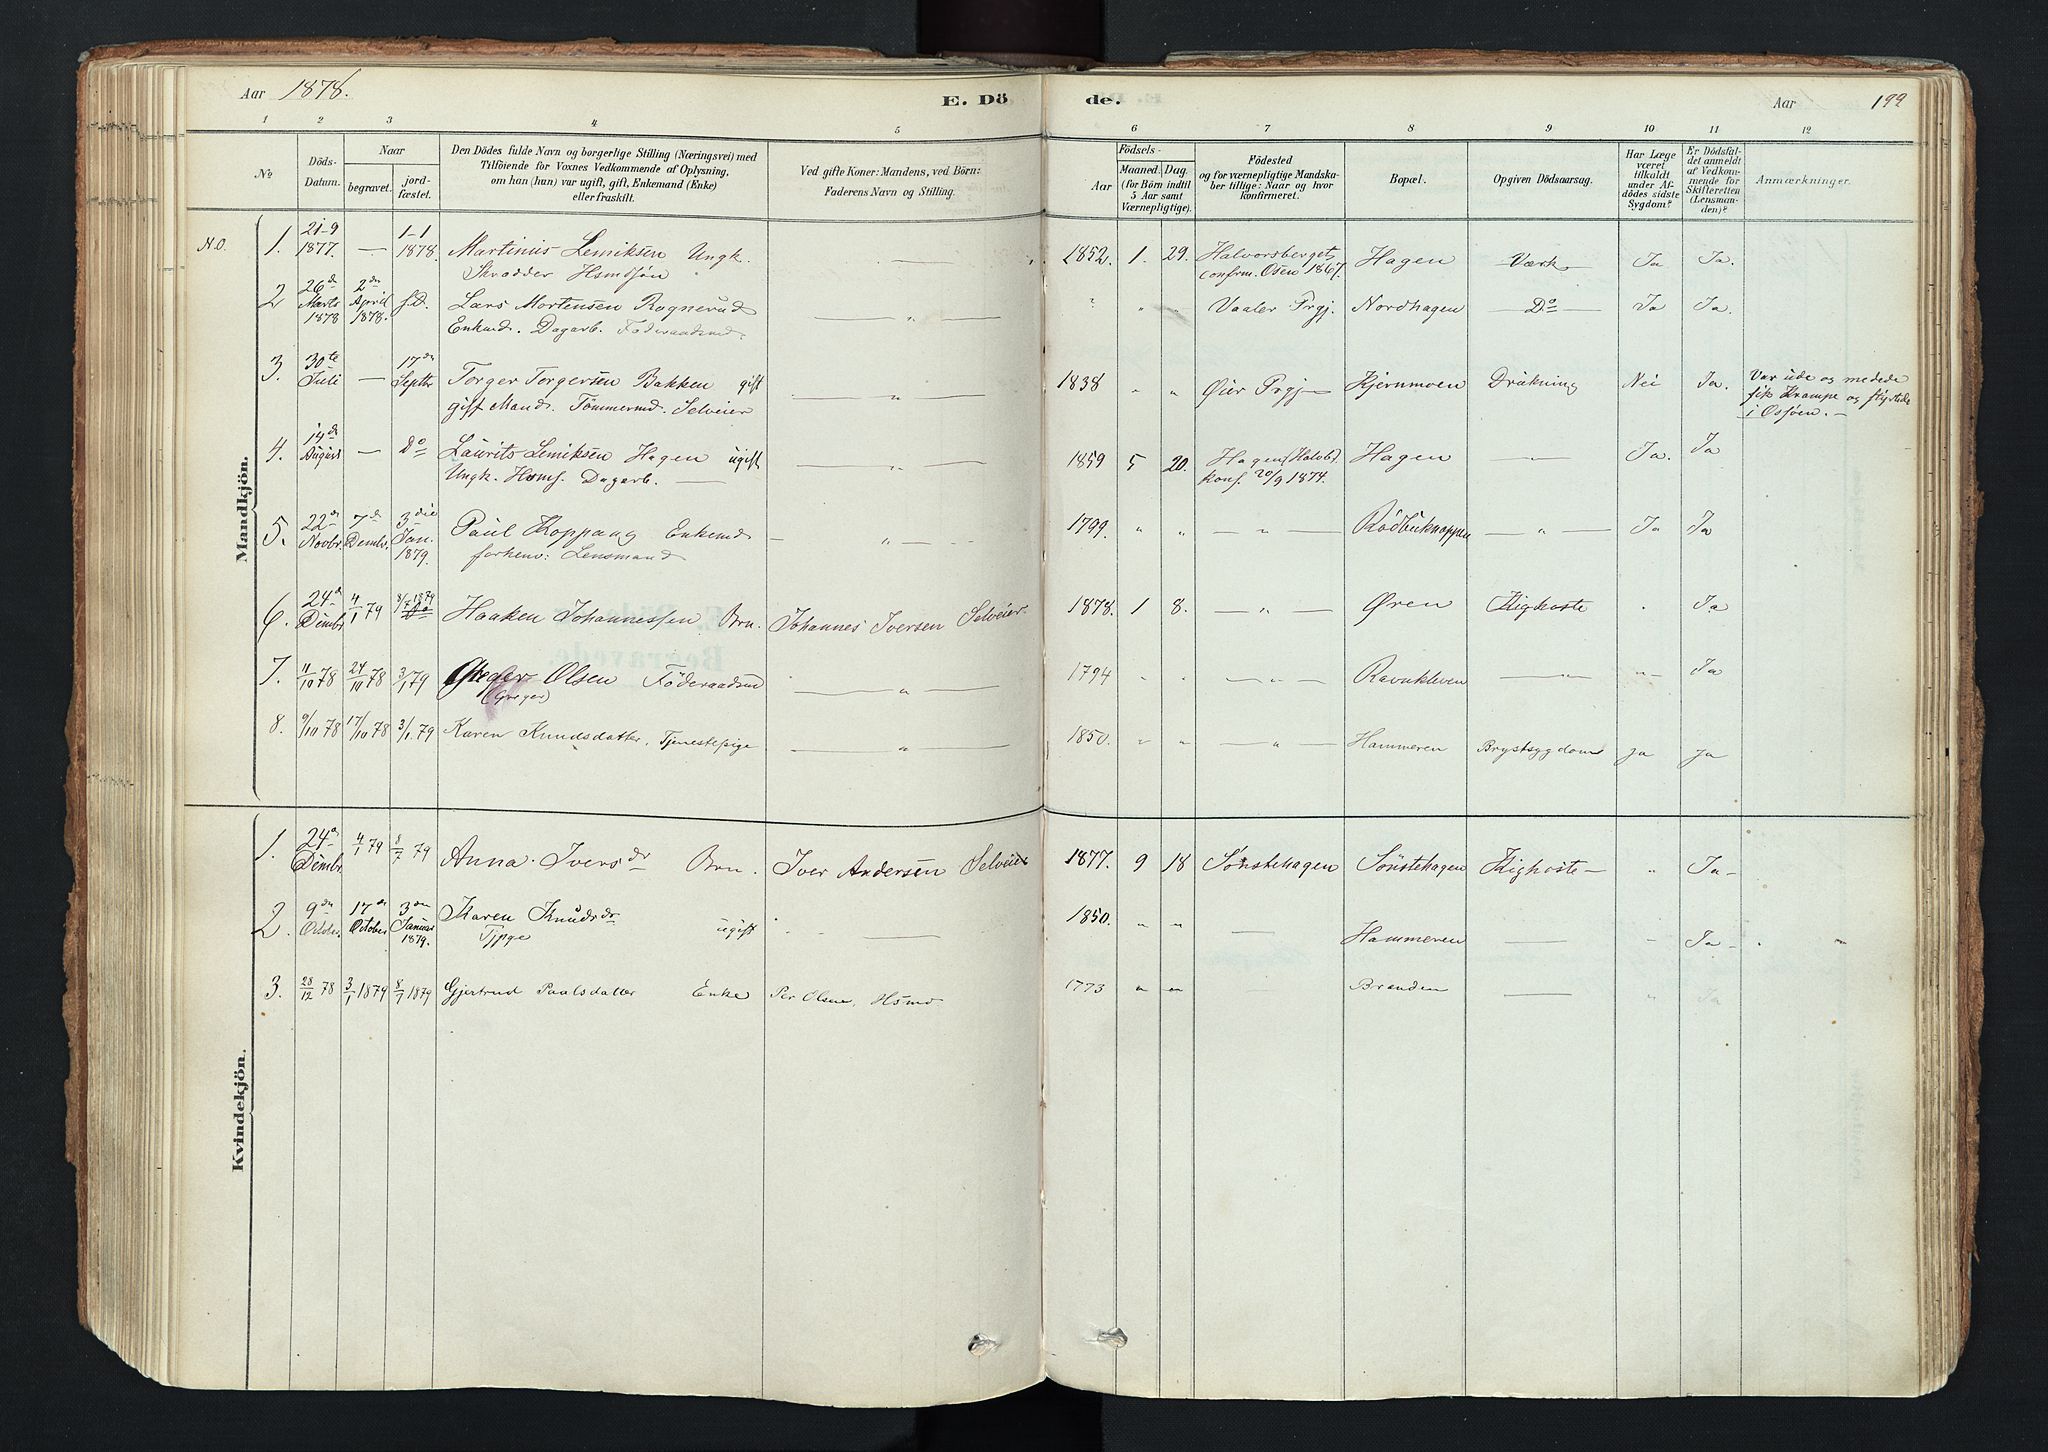 Aar 1878.
E. Dö
de.
Aar
199
1 2 3 4 5 6 7 8 9 10 11 12
No
Döds-Datum.
Naar
begravet.
jord-fæstet.
Den Dödes fulde Navn og borgerlige Stilling (Næringsvei) med
Tilföiende for Voxnes Vedkommende af Oplysning,
om han (hun) var ugift, gift, Enkemand (Enke)
eller fraskilt.
Ved gifte Koner: Mandens, ved Börn:
Faderens Navn og Stilling.
Födsels-
Aar
Maaned. Dag.
(for Börn indtil
5 Aar samt
Værnepligtige).
Födested
og for værnepligtige Mandska-
ber tillige: Naar og hvor
konfirmeret.
Bopæl.
Opgiven Dödsaarsag.
Har Læge
været
tilkaldt
under Af-
dödes sidste
Sygdom?
Er Dödsfal-
det anmeldt
af Vedkom-
mende for
Skifteretten
(Lensman-
den)?
Anmærkninger.
Mandkjön.
N.O. 1. 21-9 1877. — 1-1 1878. Martinus Lemiksen Ungk. 1852. 1. 29. Halvorsberget Hagen Værk Ja Ja.
Skrædder Hsmdsøn confirm. Osen 1867.
2 26de Marts 1878 2den April 1878. s.D. Lars Mortensen Rognerud — " — " " Vaaler Prgj. Nordhagen — Do — Ja Ja.
Enkmd. Dagarb. Föderaadsmd.
3. 30te Juli — 17de Septbr Torger Torgersen Bakken gift — " — 1838 " " Øier Prgj Kjernmoen Drukning Nei Ja. Var ude og medede
gift Mand. Tömmermd. Selveier fik Krampe og styrtede
i Ossøen. —
4. 14de August — Do Laurits Lemiksen Hagen ugift — " — 1859 5 20. Hagen (Halvb.) Hagen — Ja. Ja
Ungk. Hsmf. Dagarb. — konf. 20/9 1874.
5. 22de Novbr. 7de Dembr. 3die Jan. 1879. Paul Koppang Enkemd — " — 1799. " " — " — Rödbuknappen — " — Ja Ja
forhenv: Lensmand
6. 24de Dembr 4/1 79 8/7 1879 Do Haaken Johannessen Brn. Johannes Iversen Selveier 1878. 1 8. — " — Øren Kighoste . Ja
7. 11/10 78 24/10 78 3/1 79 Greger Olsen Föderaadsmd — " — 1794 " " — " — Ravnkleven — " — Ja
(Greger)
8. 9/10 78 17/10 78 3/1. 79 Karen Knudsdatter, Tjenestepige — " — 1850. " " — " — Hammeren Brystsygdom ja ja
Kvindekjön.
1. 24de Dembr. 4/1 79 8/7 79 Anna Iversdr Brn. Iver Andersen Selveier 1877. 9 18 Sönstehagen Sönstehagen Kighoste — " Ja —
2. 9de October. 17de October 3die Januar 1879. Karen Knudsdr ugift — 1850. " " — Hammeren — " Ja —
Tjpge
3. 28/12 78 3/1 1879 8/7 1879 Gjertrud Paalsdatter Enke Per Olsen, Hsmd 1773 " " Branden — " Ja